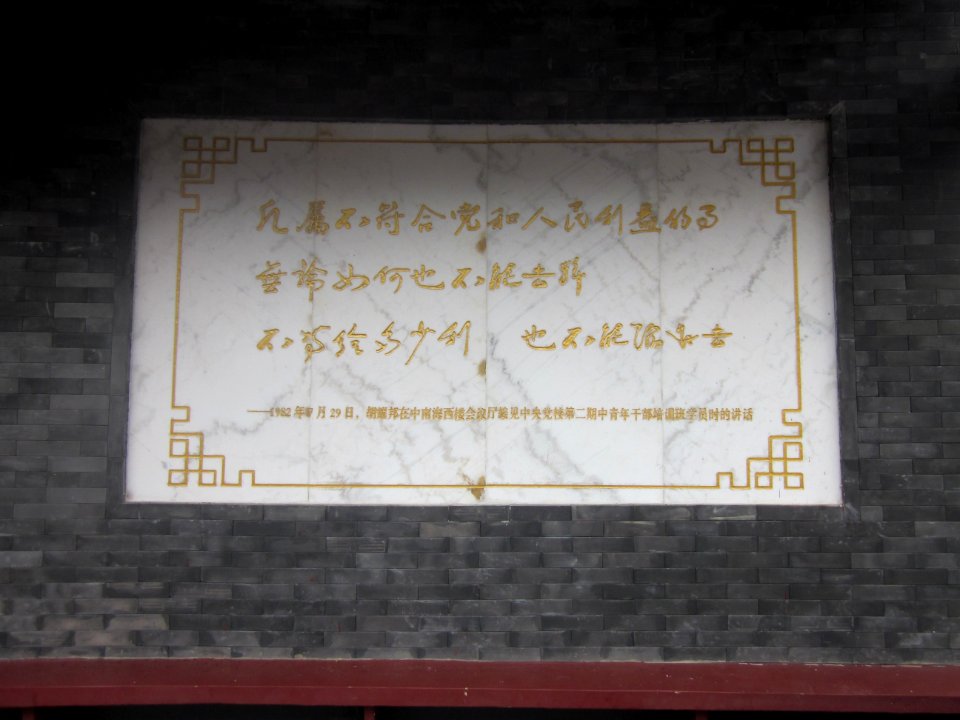 凡属不符合党和人民利益的事
无论如何也不能去干
不管给多少利 也不能随出去
——1982年9月29日，胡耀邦在中南海西楼会议厅接见中央党校第二期中青年干部培训班学员时的讲话